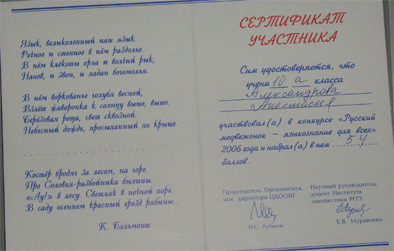 Язык, великолепный наш язык.
Речное и степное в нём раздолье.
В нём клёкоты орла и волчий рык,
Напев, и звон, и ладан богомолья.
В нём воркованье голубя весной,
Взлёт жаворонка к солнцу выше, выше.
Берёзовая роща, свет сквозной.
Небесный дождь, просыпанный по крыше.
Костёр бродяг за лесом, на горе.
Про Соловья-разбойника былины.
«Ау!» в лесу. Светляк в ночной поре.
В саду осеннем красный грозд рябины...
К. Бальмонт
СЕРТИФИКАТ
УЧАСТНИКА
Сим удостоверяется, что
учени 10 а класса
Александрова
Анастасия
участвовал(а) в конкурсе «Русский
медвежонок - языкознание для всех»
2006 года и набрал(а) в нем
баллов.
Председатель Оргкомитета,
зам. директора ЦДООШ
И.С. Рубанов
Научный руководитель,
доцент Института
лингвистики РГГУ
Е.В. Муравенко